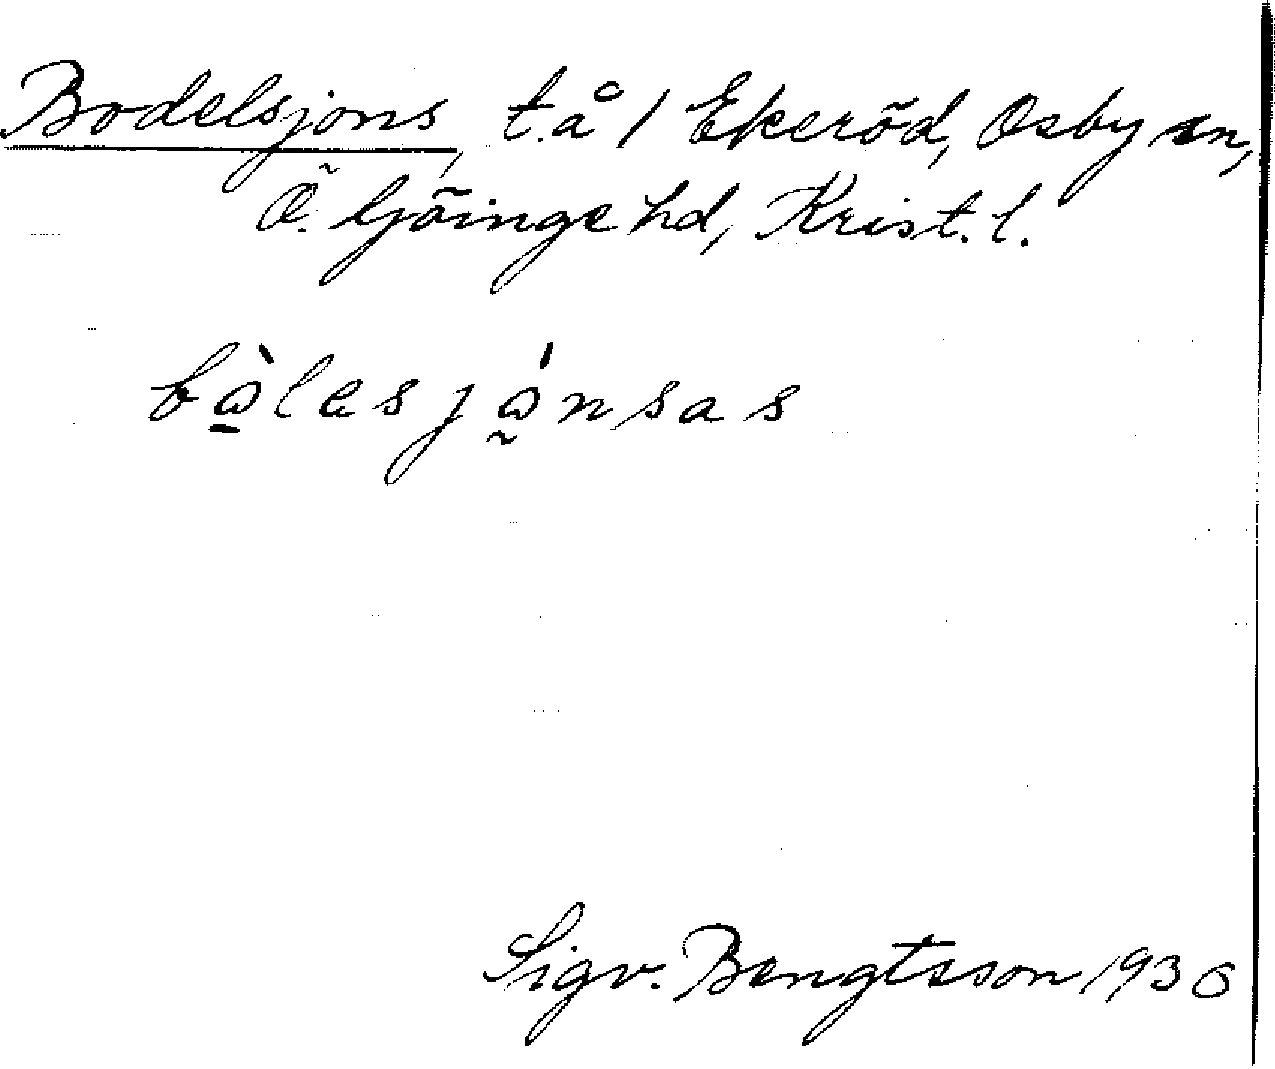 Bodelsjons, t.å 1 Ekeröd, Osby sn,
Ö. Göinge hd, Krist. l.
bò̱lesjó̰nsas
Sigv. Bengtsson 1936